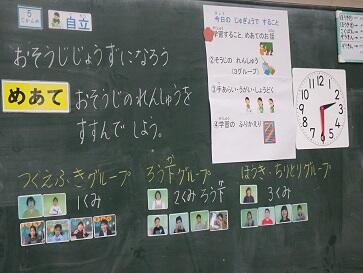 5
自立
おそうじじょうずになろう
めあて
おそうじのれんしゅうを
すすんで しよう。
今日の じゅぎょうで すること
①学習すること、めあてのお話
②そうじの れんしゅう
(3グループ)
③手あらい・うがい・しょうどく
④学習の ふりかえり
つくえふきグループ
1くみ
ろう下グループ
2くみ ろう下
ほうき・ちりとりグループ
3くみ